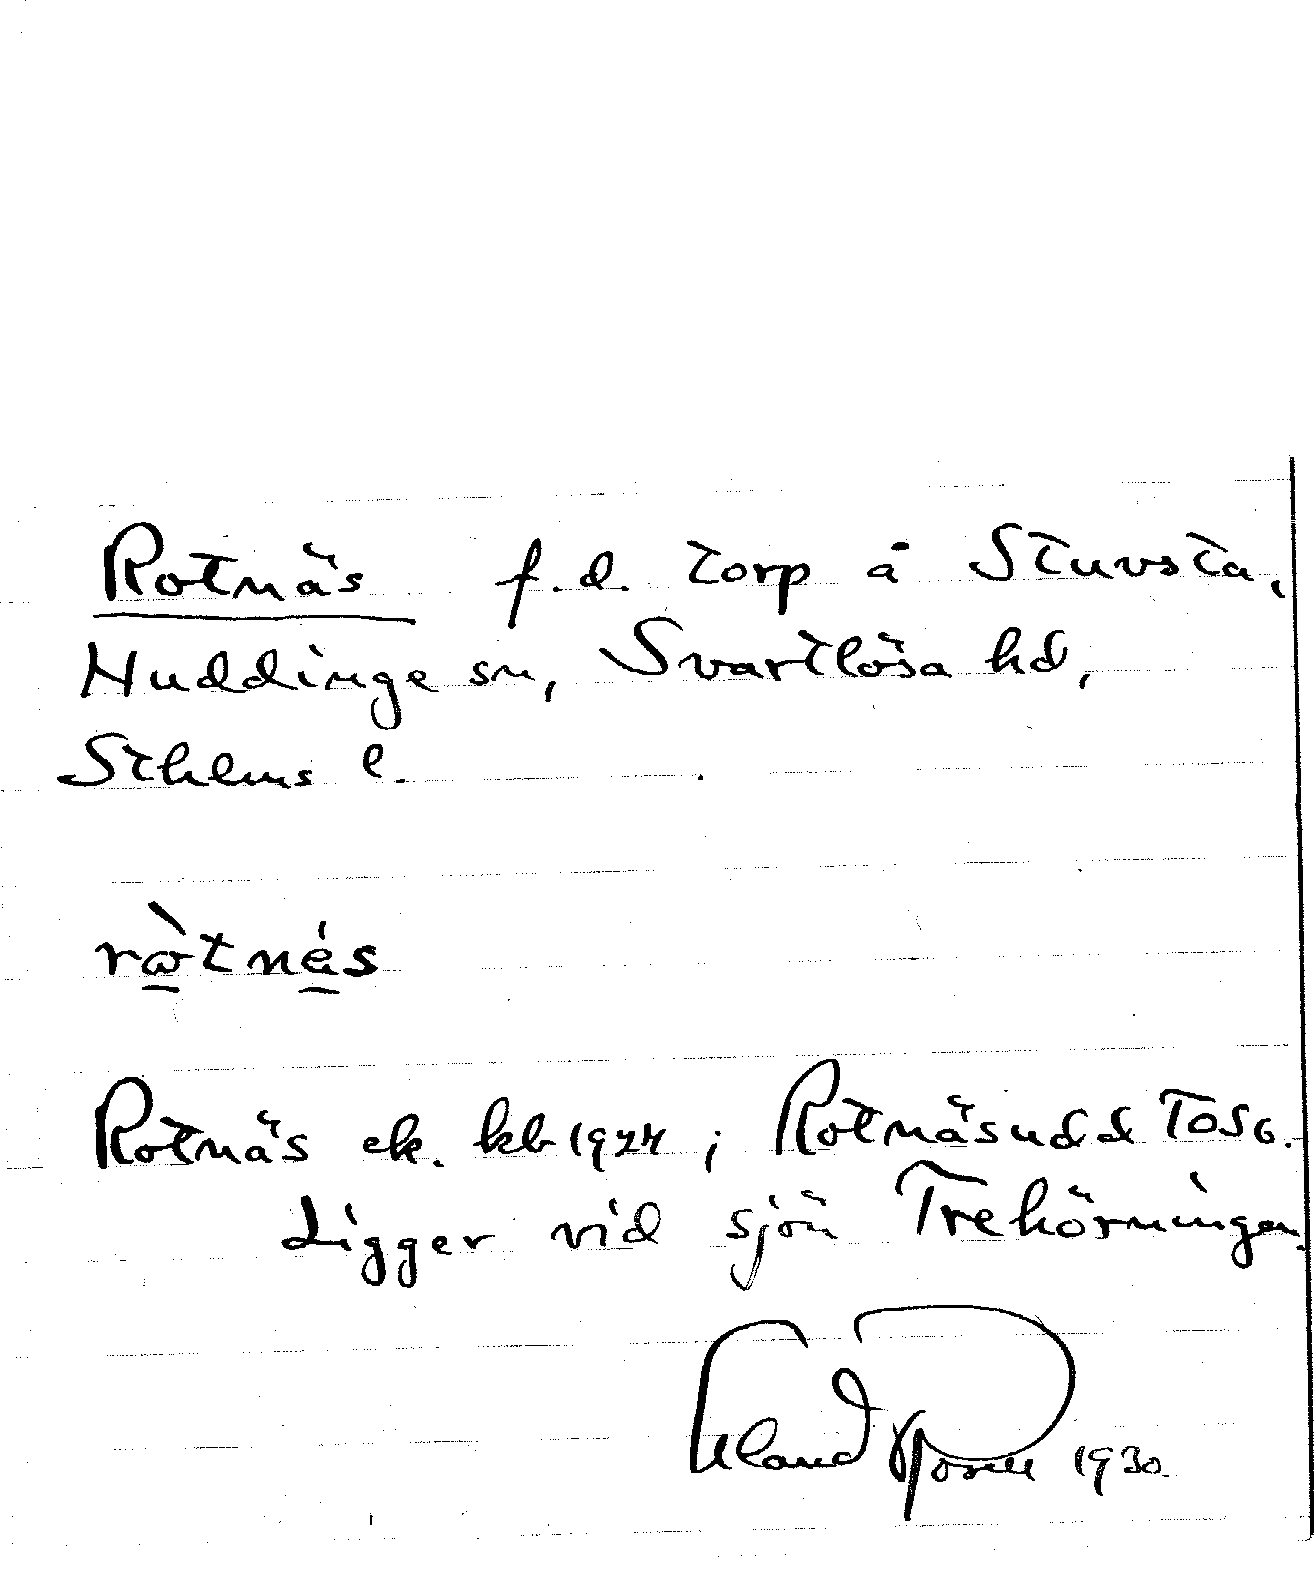 Rotnäs f.d. torp å Stuvsta,
Huddinge sn, Svartlösa hd,
Sthlms l.
ròtnés
Rotnäs ek. kb 1924; Rotnäsudd TOSG.
Ligger vid sjön Trehörningen.
Roland 1930.